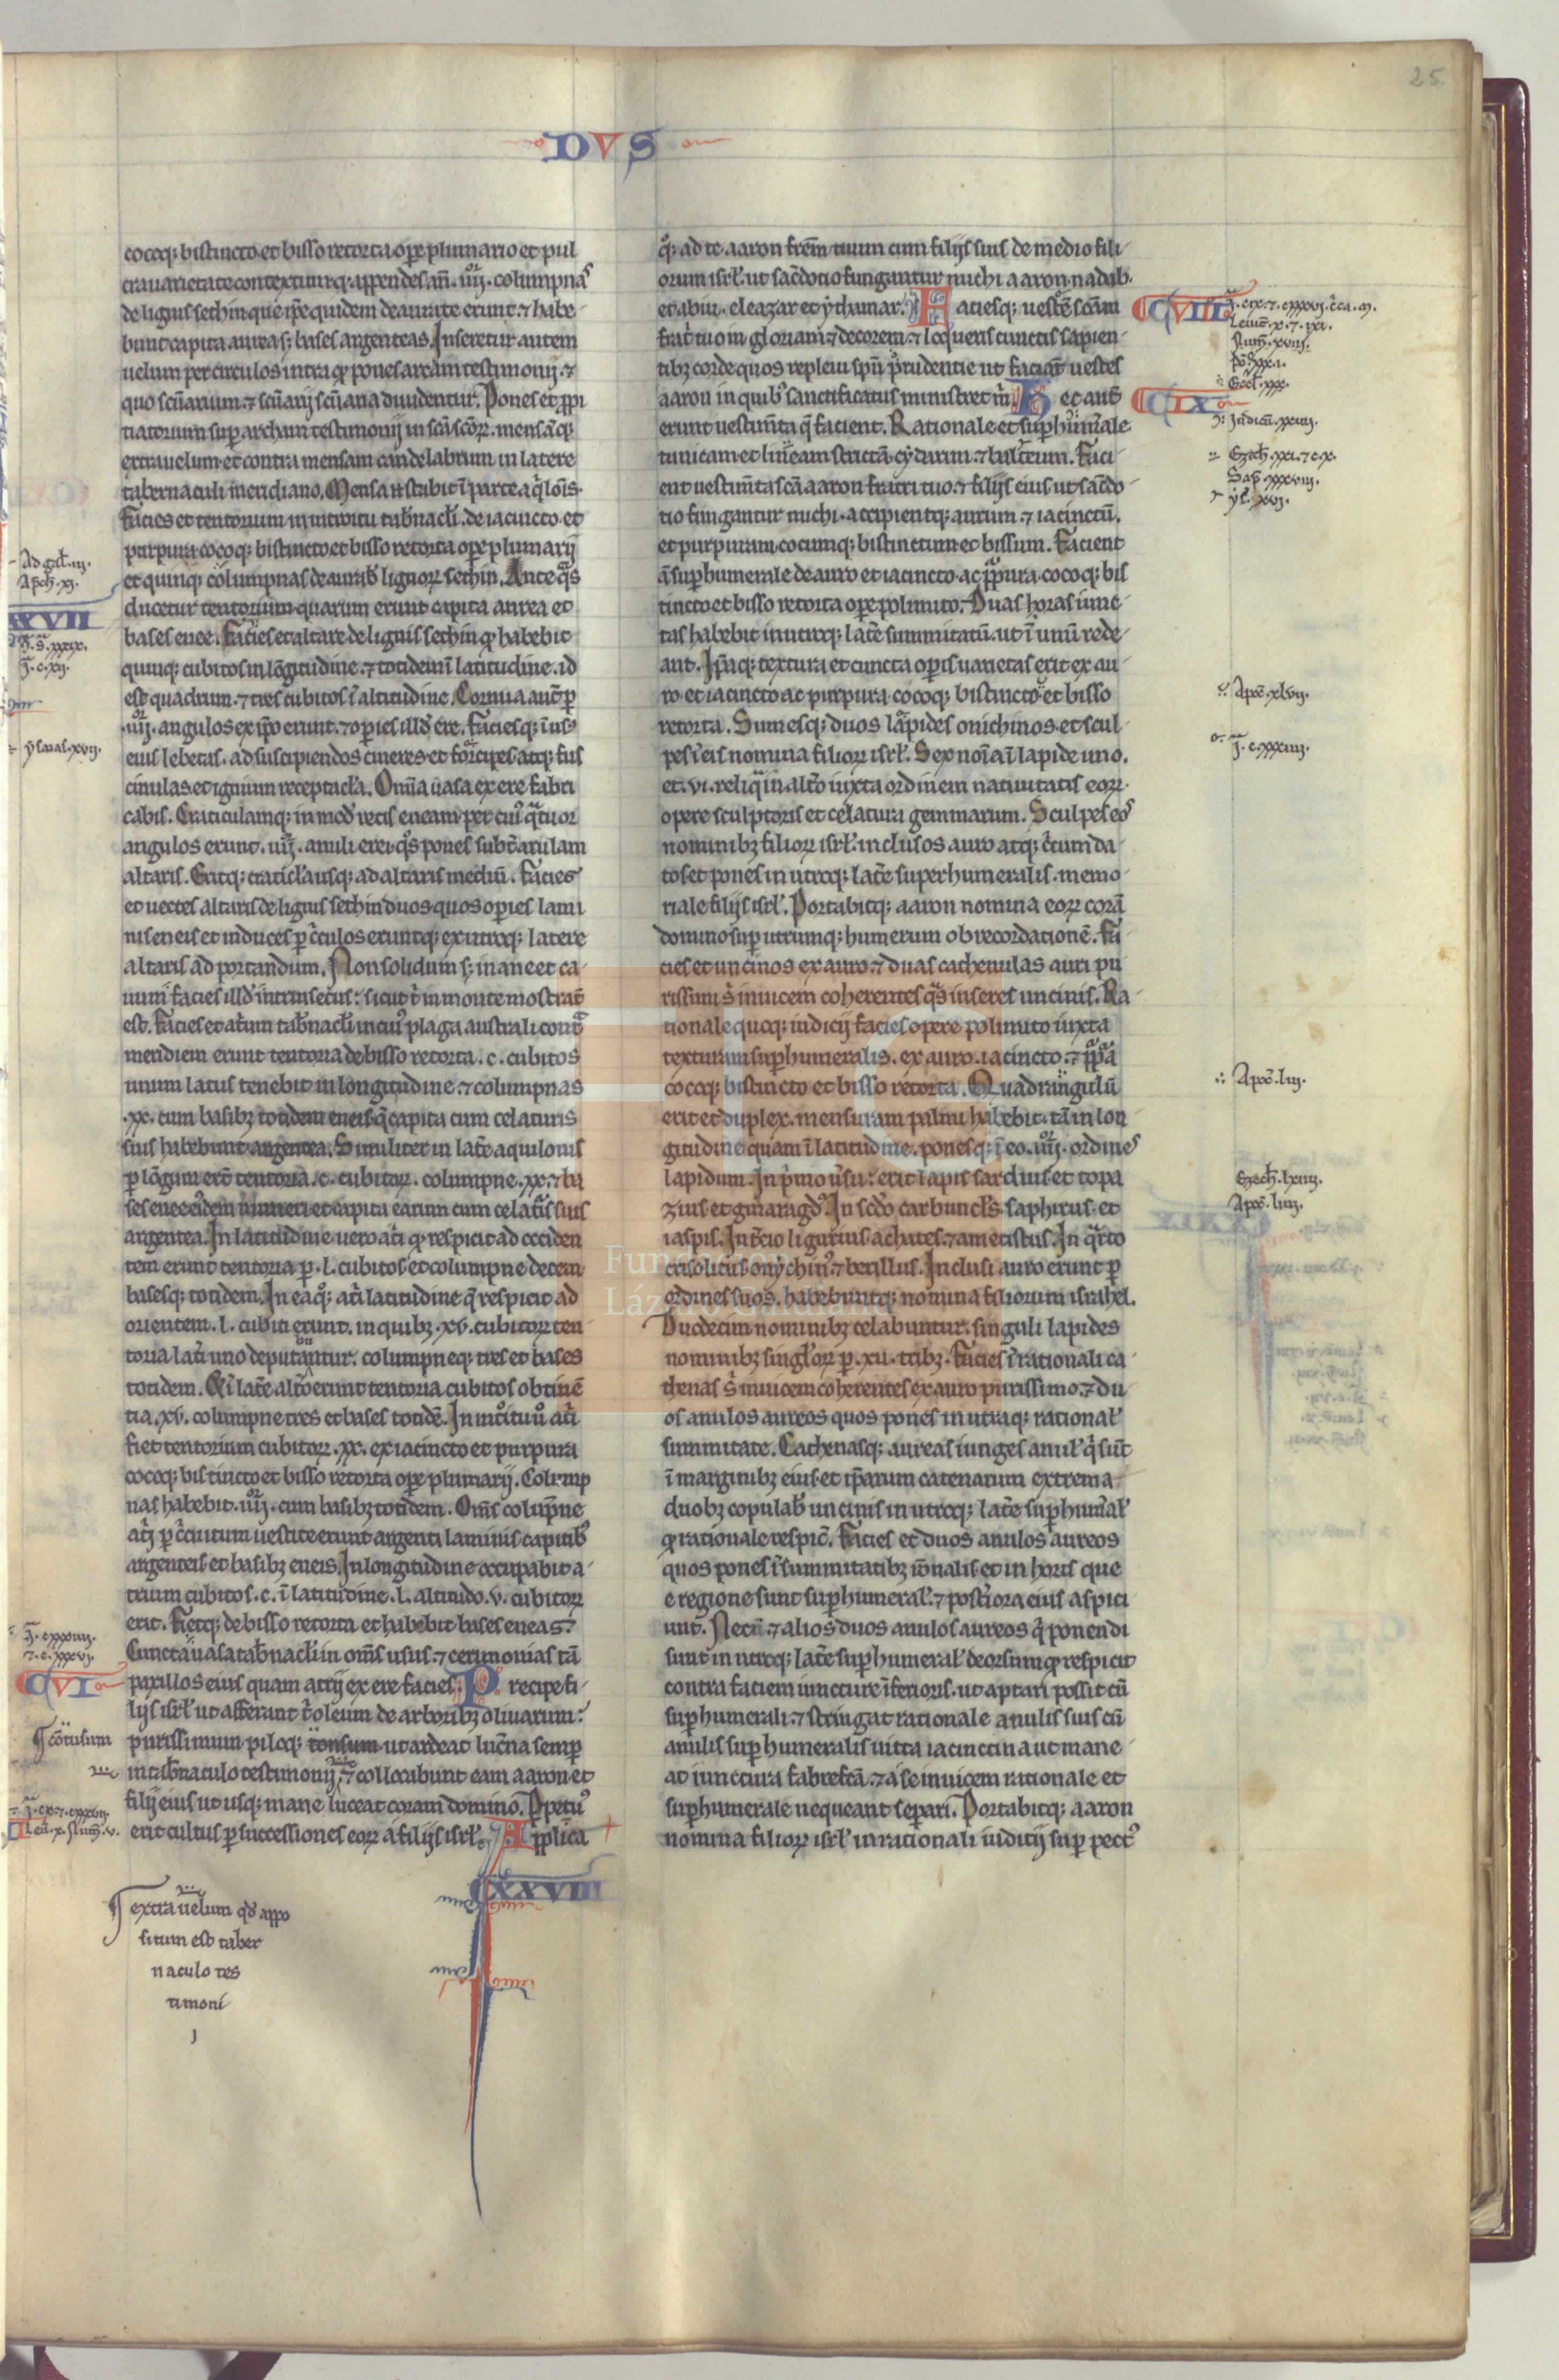 25.
DVS
cocoq; bistincto et bisso retorta ope plumario et pul
cra uarietate contextumq; appendes an̄. iiii. columpnas
de lignis sethin que ip̄e quidem deaurate erunt. ⁊ habe
bunt capita aurea s; bases argenteas. Inseretur autem
uelum per circulos intra qd̓ pones arcam testimonij. ⁊
quo scūarium. ⁊ scūarij scūaria diuidentur. Pones et ꝓpi
tiatorium suꝑ archam testimonij in scā scōꝝ. mensāq;
extra uelum et contra mensam candelabrum in latere
tabernaculi meridiano. Mensa n̄ stabit ī parte aq̓lōis.
Facies et tentorium in introitu tab̄nacłi. de iacincto et
purpura cocoq; bistincto et bisso retorta ope plumarij
et quinq; columpnas deaurab̓ lignoꝝ sethin. Ante q̄s
ducetur tentorium quarum erunt capita aurea et
bases enee. Facies et altare de lignis sethin qd̓ habebit
quinq; cubitos in lōgitudine. ⁊ totidem ī latitudine. id
est quadrum. ⁊ tres cubitos ī altitudine. Cornua aut̄ ꝑ
.iiii. angulos ex ip̄o erunt. ⁊ opies illd̓ ere. Faciesq; ī us
eius lebetas. ad suscipiendos cineres et forcipes atq; fus
cinulas et ignium receptacła. Om̄ia uasa ex ere fabri
cabis. Craticulamq; in mod̓ retis eneam per cui̓ q̄tuor
angulos erunt. iiii. anuli erei q̄s pones subt̄ arulam
altaris. Eritq; craticła usq; ad altaris mediū. Facies
et uectes altaris de lignis sethin duos quos opies lami
nis eneis et induces ꝑ c̓culos eruntq; ex utroq; latere
altaris ad portandum. Non solidum s; inane et ca
uum facies illd̓ intrinsecus: sicut t̓ in monte mostrat̄
est. Facies et at̓um tab̄nacłi in cui̓ plaga australi cont̓
meridiem erunt tentoria de bisso retorta. c. cubitos
unum latus tenebit in longitudine. ⁊ columpnas
.xx. cum basibꝫ totidem eneis q̄ capita cum celaturis
suis habebunt argentea. Similiter in lat̄e aquilonis
ꝑ lōgum er̄t tentoria. c. cubitoꝝ. columpne. xx. ⁊ ba
ses enee eiꝰdem numeri et capita earum cum celat̓is suis
argentea. In latitudine uero at̓i qd̓ respicit ad occiden
tem erunt tentoria ꝑ. l. cubitos et columpne decem
basesq; totidem. In ea q̊; at̓i latitudine q̄ respicit ad
orientem. l. cubiti erunt. in quibꝫ. xv. cubitoꝝ ten
toria lat̓i uno deputantur. columpneq; tres et bases
totidem. Et ī lat̄e alto erunt tentoria cubitos obtinē
tia. xv. columpne tres et bases totidē. In int̓oitu ū at̓i
fiet tentorium cubitoꝝ. xx. ex iacincto et purpura
cocoq; bistincto et bisso retorta ope plumarij. Colump
nas habebit. iiii. cum basibꝫ totidem. Om̄s colup̄ne
at̓ij ꝑ c̓cuitum uestite erunt argenti laminis capitib̓
argenteis et basibꝫ eneis. In longitudine occupabit a
trium cubitos. c. ī latitudine. l. altitudo. v. cubitoꝝ
erit. Fietq; de bisso retorta et habebit bases eneas.
Cuncta uasa tab̄nacłi in om̄s usus. ⁊ cerimonias tā
paxillos eius quam atrij ex ere facies. P recipe fi
lijs isrł ut afferant t̓ oleum de arboribꝫ oliuarum:
purissimum piloq; tonsum ut ardeat luc̄na semꝑ
in tab̄naculo testimonij. ⁊ collocabunt eam aaron et
filij eius ut usq; mane luceat coram domino. Ꝑpetu̓
erit cultus ꝑ successiones eoꝝ a filijs isrł. A pplica
q̊; ad te aaron frēm tuum cum filijs suis de medio fili
orum isrł. ut sac̄dotio fungantur michi aaron. nadab.
et abiu. eleazar et ythamar. F aciesq; uestē scām
frat̓ tuo in gloriam ⁊ decorem. ⁊ loqueris cunctis sapien
tibꝫ corde quos repleui spū prudentie ut faciant uestes
aaron in quib̓ sanctificatus ministret m̓. H ec aut̄
erunt uestim̄ta q̄ facient. Rationale et suꝑhum̄ale
tunicam et lineam strictā. cydarim. ⁊ balteum. Faci
ent uestim̄ta scā aaron fratri tuo. ⁊ filijs eius ut sac̄do
tio fungantur michi. accipientq; aurum. ⁊ iacinctū.
et purpuram cocumq; bistinctum et bissum. Facient
ā suꝑhumerale de auro et iacincto. ac ꝑpura. cocoq; bis
tincto et bisso retorta ope polimito. Duas horas iunc
tas habebit in utroq; lat̄e summitatū. ut ī unū rede
ant. Ip̄aq; textura et cuncta opis uarietas erit ex au
ro et iacincto ac purpura cocoq; bistincto et bisso
retorta. Sumesq; duos lapides onichinos. et scul
pes ī eis nomina filioꝝ isrł. Sex noīa ī lapide uno.
et. vi. reliq̓ in alto iuxta ordinem natiuitatis eoꝝ.
opere sculptoris et celatura gemmarum. Sculpes eos
nominibꝫ filioꝝ isrł. inclusos auro atq; c̓cumda
tos et pones in utroq; lat̄e superhumeralis. memo
riale filijs isrł. Portabitq; aaron nomina eoꝝ corā
domino suꝑ utrumq; humerum ob recordationē. Fa
cies et uncinos ex auro. ⁊ duas cathenulas auri pu
rissimi s̓ inuicem coherentes q̄s inseres uncinis. Ra
tionale quoq; iudicij facies opere polimito iuxta
texturam suꝑhumeralis. ex auro. iacincto. ⁊ ꝑpa
cocoq; bistincto et bisso retorta. Quadrangulū
erit et duplex. mensuram palmi habebit. tā in lon
gitudine quam ī latitudine. ponesq; ī eo. iiii. ordines
lapidum. In p̓mo u̓su: erit lapis sardius et topa
zius et smaragd̓. In scd̓o carbuncłs. saphirus. et
iaspis. In t̄cio ligurius. achates. ⁊ ametistus. In q̄rto
crisolitus. onychin̓. ⁊ berillus. Inclusi auro erunt ꝑ
ordines suos. habebuntq; nomina filiorum israhel.
Duodecim nominibꝫ celabuntur. singuli lapides
nominibꝫ singłoꝝ ꝑ. xii. tribꝫ. Facies ī rationali ca
thenas s̓ inuicem coherentes ex auro purissimo. ⁊ du
os anulos aureos quos pones in utraq; rational̓
summitate. Cathenasq; aureas iunges anul̓ q̓ sūt
ī marginibꝫ eius. et ip̄arum catenarum extrema.
duobꝫ copulab̓ uncinis in utroq; lat̄e suꝑhum̄al̓
qd̓ rationale respic̄. Facies et duos anulos aureos
quos pones ī summitatibꝫ rōnalis. et in horis que
e regione sunt suꝑhumeral̓. ⁊ post̓iora eius aspici
unt. Necū. ⁊ alios duos anulos aureos q̓ ponendi
sunt in utroq; lat̄e suꝑhumeral̓ deorsum qd̓ respicit
contra faciem iuncture īferioris. ut aptari possit cū
suꝑhumerali. ⁊ stringat rationale anulis suis cū
anulis suꝑhumeralis uitta iacinctina ut mane
at iunctura fabrefcā. ⁊ a se inuicem rationale et
suꝑhumerale nequeant separi. Portabitq; aaron
nomina filioꝝ isrł in rationali iudicij suꝑ pect̓
Ad gal̓. iii.
Apoc̄. xi.
XXVII
ysaias. xvii.
CVI
cōtusum
CXXVIII
extra uelum qd̓ appo
situm est taber
naculo tes
timoni
j
CVIII
Num̄. xviii.
Eccł. xxx.
CIX
Iudicū. xviii.
Ezech̄. xxi. ⁊ c. x.
Sap̄. xxxviii.
Apoc̄. xlvii.
J. c. xxxiiii.
Apoc̄. liii.
Ezech̄. lxiii.
Apoc̄. liii.
Fundación
Lázaro Galdiano